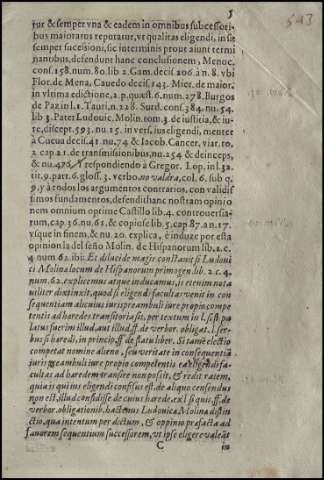 5
tur & semper vna & eadem in omnibus successori-
bus maioratus reputatur, vt qualitas eligendi, in se
semper sucessioni, sic interminis prout aiunt termi
nantibus, defendunt hanc conclusionem, Menoc.
cons. 158. num. 80. lib 2. Gam. decis. 206. à n. 8. vbi
Flor. de Mena, Cauedo decis. 143. Mier. de maior.
in vltima edictione, 2. p. quæst. 6. num. 278. Burgos
de Paz in l. 1. Tauri, n. 228. Surd. cons. 384. nu. 54.
lib 3. Pater Ludouic. Molin. tom. 3. de iusticia, & iu-
re, discept. 593. nu. 15. in vers. ius eligendi, mentee
à Cucua decis. 41. nu. 74 & Iacob. Cancer. viat. to.
2 cap. 21. de transmissionibus, nu. 254 & deinceps,
& nu. 476. Y respondiendo à Gregor. Lop. in l. 32.
tit. 9. part. 6. gloss. 3. verbo, no valdra, col. 6. sub q.
9. y à todos los argumentos contrarios, con validis
simos fundamentos, defendit hanc nostam opinio
nem omnium optime Castillo lib 4. controuersia-
rum, cap. 36. nu. 61. & copiose lib. 5. cap. 87. an. 17.
vsque in finem, & nu. 20. explica, è induze por esta
opinion la del seño Molin. de Hispanorum lib. 2. c.
4 num 62. ibi: Et dilucide magis constauit si Ludoui
ci Molina locum de Hispanorum primogen. lib. 2. c. 4.
num. 62. explicemus atque inducamus, is etenim nota
uiliter distinxit, quod si eligendi facultas venit in con
sequentiam alicuius iuris preambuli iure proprio compe
tentis ad haredes transitoria sit, per textum in l. si sti
pulatus fuerim illud, aut illud, ff. de verbor. obligat. l. ser-
bus si haredi, in princip. ff. de statu liber. Si tamè electio
competat nomine alieno, seu veritate in consequentiã
iuris preambuli iure proprio competentis, ea eligendi fa-
cultas ad haredem transire non possit, & reddit ratem,
quia is qui ius eligendi confisus est. de aliquo censendus
non est, illud condidisse de cuius harede, ex l. si quis, ff. de
verbor. obligationib. hactenus Ludouica, Molina distin
ctio, qua intentum per dictum, & oppinio præfacta ad
fauorem sequentium successorem, vt ipse eligere valeãt
C
in